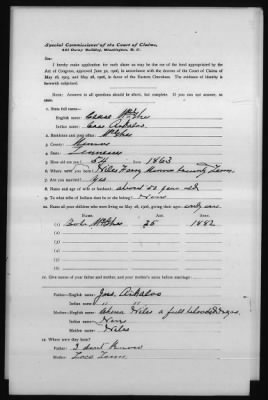 Special Commissioner of the Court of Claims,
601 Ouray Building, Washington, D. C.
SIR:
I hereby make application for such share as may be due me of the fund appropriated by the
Act of Congress, approved June 30, 1906, in accordance with the decrees of the Court of Claims of
May 18, 1905, and May 28, 1906, in favor of the Eastern Cherokees. The evidence of identity is
herewith subjoined.
NOTE: Answers to all questions should be short, but complete. If you can not answer, so
state.
1. State full name—
English name:
Indian name:
2. Residence and post office: McGhee
3. County: Monroe
4. State: Tennessee
5. How old are you? 54 1863
6. Where were you born? Niles Ferry Monroe County Tenn.
7. Are you married? Yes
8. Name and age of wife or husband: about 50 year old
9. To what tribe of Indians does he or she belong?
10. Name all your children who were living on May 28, 1906, giving their ages: only one
NAME. AGE. BORN.
(1) McGhee 25 1882
(2)
(3)
(4)
(5)
(6)
11. Give names of your father and mother, and your mother's name before marriage:
Father—English name: Jos.
Indian name: " "
Mother—English name: Niles a full blooded
Indian name:
Maiden name: Niles
12. Where were they born?
Father:
Mother: Loco Tenn.